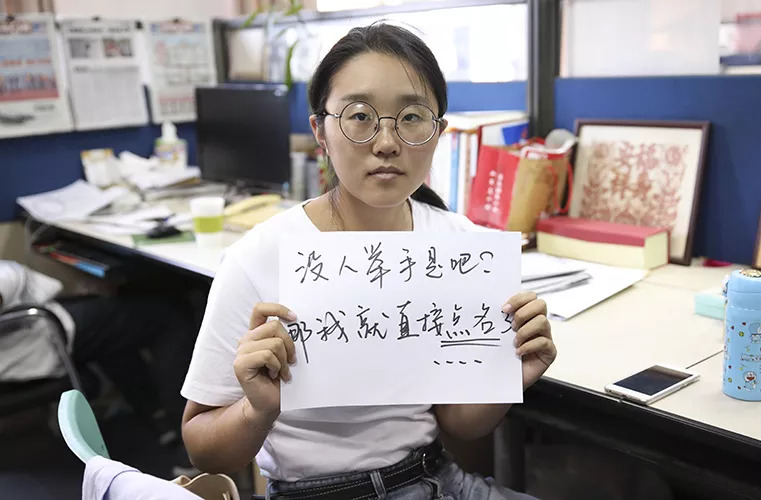 没人举手是吧?
那我就直接点名了
....